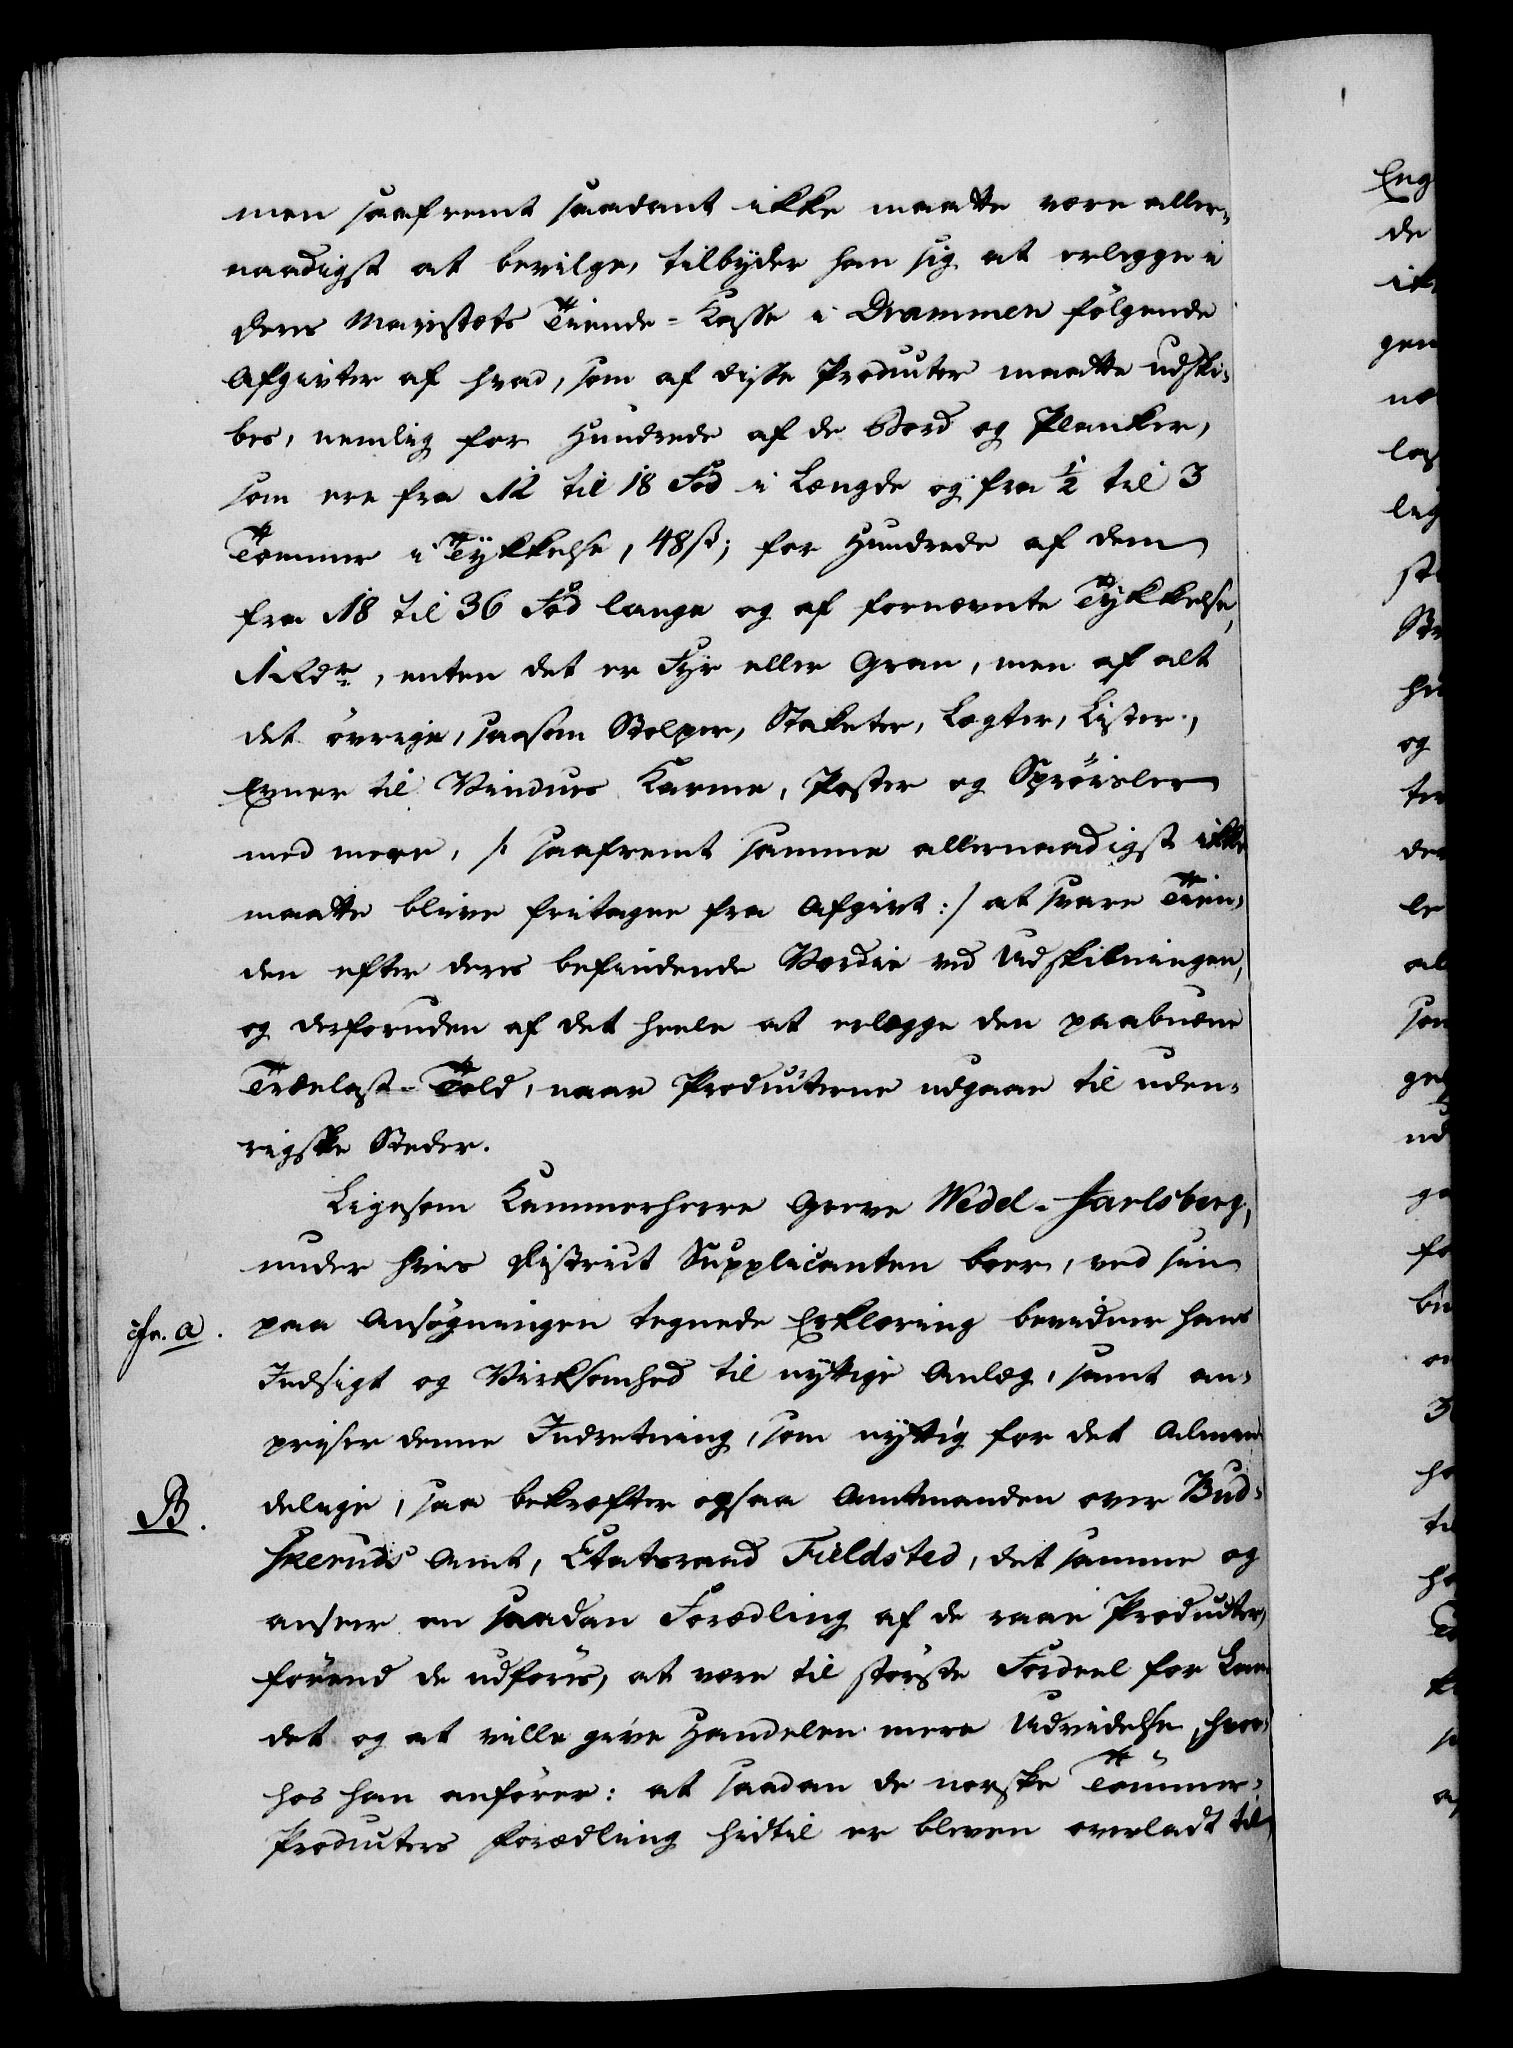 men saafremt saadant ikke maatte være aller-
naadigst at bevilge, tilbyder han sig at erlegge i
Deres Majestæts Tiende-Kasse i Drammen følgende
Afgivter af hvad, som af disse Producter maatte udski-
bes, nemlig for Hundrede af de Bord og Planker,
som ere fra 12 til 18 Fod i Længde og fra ½ til 3
Tommer i Tykkelse, 48 ß; for Hundrede af dem
fra 18 til 36 Fod lange og af fornævnte Tykkelse,
1 Rdr, enten det er Fyr eller Gran, men af alt
det övrige, saasom Stolper, Staketer, Lægter, Lister,
Emner til Vindues Karme, Poster og Sprösler
med mere, /: saafremt samme allernaadigst ikke
maatte blive fritagne fra Afgivt :/ at svare Tien-
den efter deres befindende Værdie ved Udskibningen,
og desforuden af det heele at erlægge den paabudne
Trælast-Told, naar Producterne udgaar til uden-
rigske Steder.
Ligesom Kammerherre Greve Wedel-Jarlsberg,
under hvis District Supplicanten boer, ved sin
cfr. a. paa Ansögningen tegnede Erklæring bevidner hans
Indsigt og Virksomhed til nyttige Anlæg, samt an-
priser denne Indretning, som nyttig for det Almin-
B. delige, saa bekræfter ogsaa Amtmanden over Bud-
skeruds Amt, Etatsraad Fieldsted, det samme og
anseer en saadan Forædling af de raae Producter,
förend de udföres, at være til störste Fordeel for Lan-
det og at ville give Handelen mere Udvidelse, hvor-
hos han anförer: at saadan de norske Tömmer-
Producters forædling hidtil er bleven overladt til